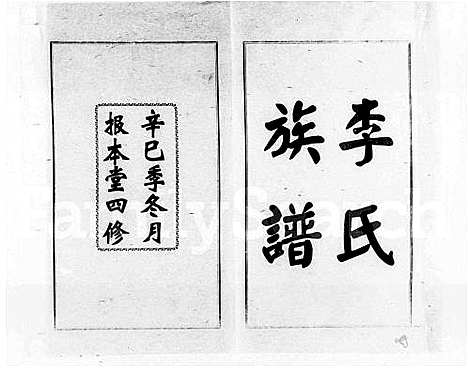 李氏
族譜
辛巳季冬月
报本堂四修